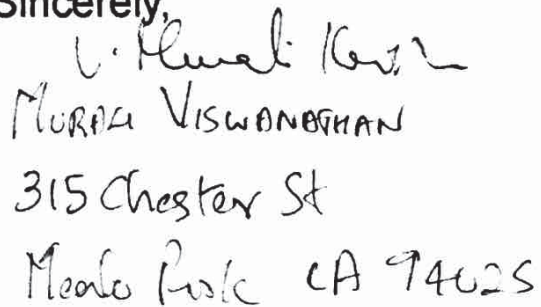 Sincerely,
V. Murali
MURALI VISWANATHAN
315 Chester St
Menlo Park CA 94025